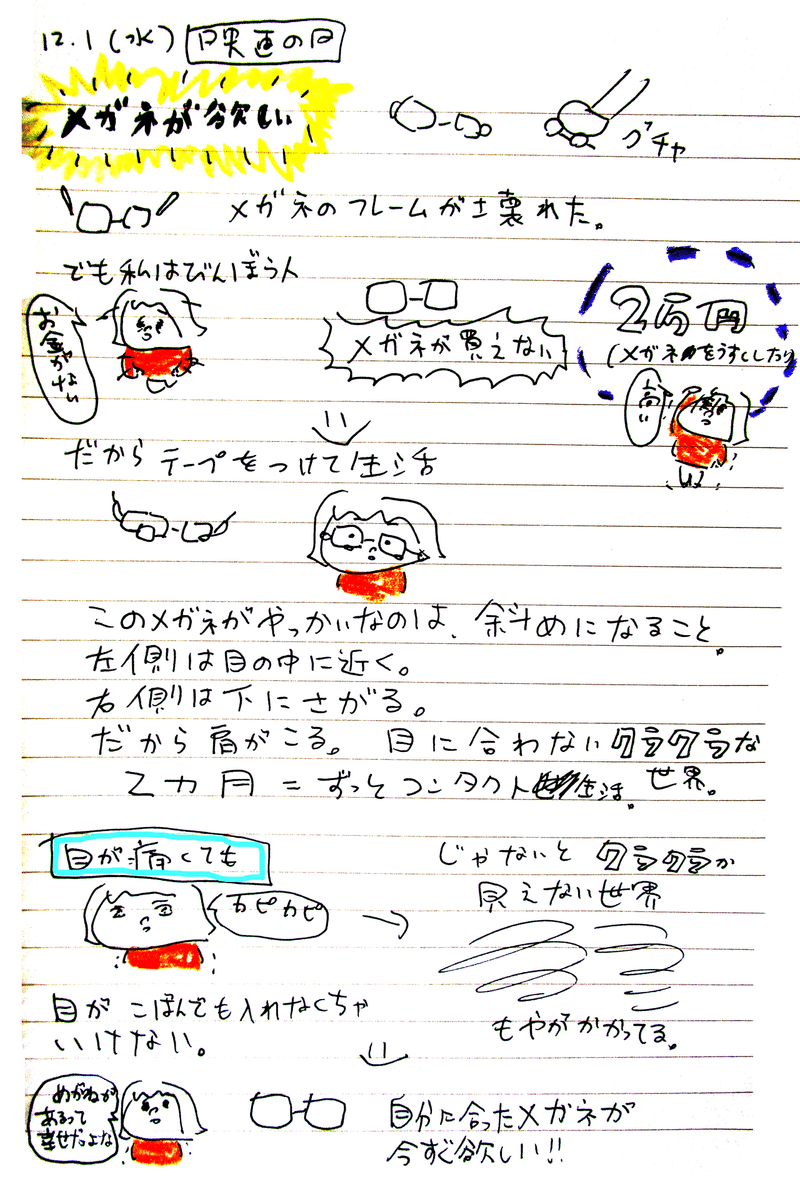 12.1(水) 映画の日
メガネが欲しい
グチャ
メガネのフレームが壊れた。
でも私はびんぼう人
お金がない
メガネが買えない
2万円
(メガネをうすくしたり)
高い
だからテープをつけて生活
このメガネがやっかいなのは、斜めになること。
左側は目の中に近く。
右側は下にさがる。
だから肩がこる。目に合わないクラクラな
世界。
2カ月=ずっとコンタクト生活。
目が痛くても
カピカピ
じゃないとクラクラか
見えない世界
もやがかかってる。
目がこぼんでも入れなくちゃ
いけない。
めがねが
あるって
幸せだよな
自分に合ったメガネが
今すぐ欲しい!!